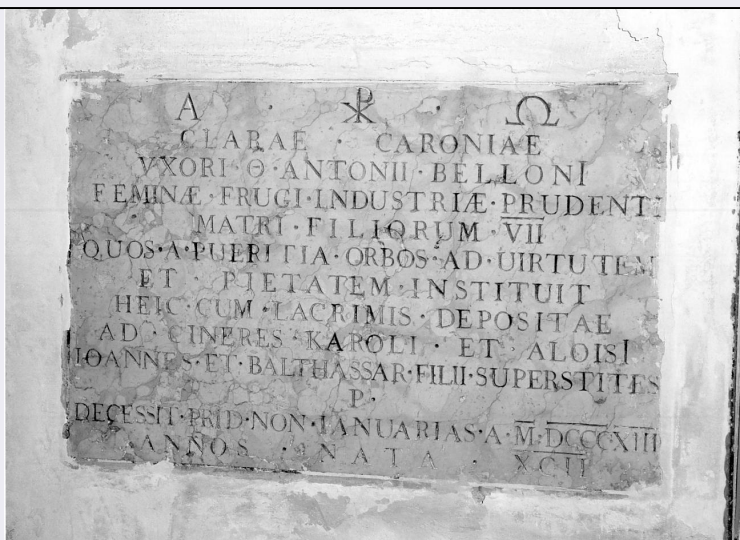 A · ☧ · Ω
CLARAE · CARONIAE
VXORI · Θ · ANTONII · BELLONI
FEMINÆ · FRUGI · INDUSTRIÆ · PRUDENTI
MATRI · FILIORUM · VII
QUOS · A · PUERITIA · ORBOS · AD · UIRTUTEM
ET · PIETATEM · INSTITUIT
HEIC · CUM · LACRIMIS · DEPOSITAE
AD · CINERES · KAROLI · ET · ALOISI
IOANNES · ET · BALTHASSAR · FILII · SUPERSTITES
P ·
DECESSIT · PRID · NON · IANUARIAS · A · M · DCCCXIII
ANNOS · NATA · XCII